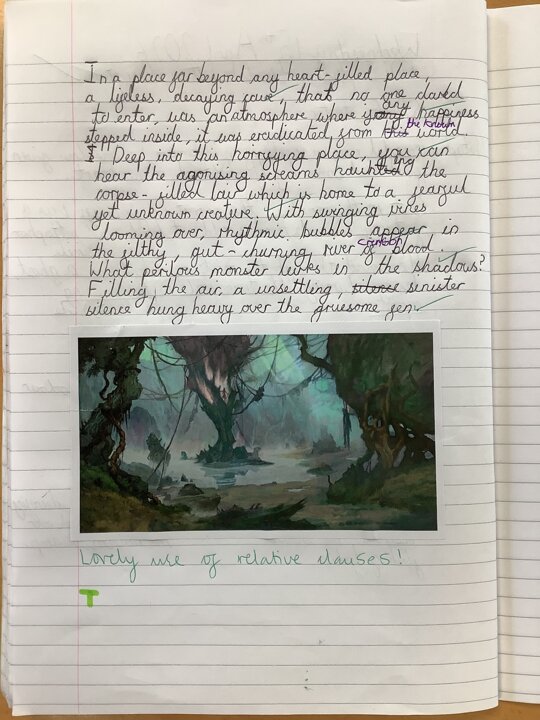 In a place far beyond any heart-filled place,
a lifeless, decaying cave, that no one dared
to enter, was an atmosphere where if any any happiness
stepped inside, it was eradicated from this the known world.
Deep into this horrifying place, you can
hear the agonising screams haunted ing the
corpse-filled lair which is home to a fearful
yet unknown creature. With swinging vines
looming over, rhythmic bubbles appear in
the filthy, gut-churning river of crimson blood.
What perilous monster lurks in the shadows?
Filling the air, a unsettling, silence sinister
silence hung heavy over the gruesome fen.
Lovely use of relative clauses!
T